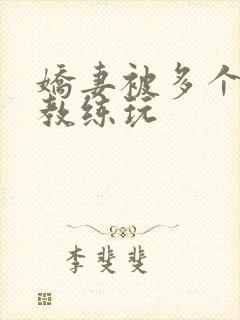 娇妻被多个
教练玩
李斐斐